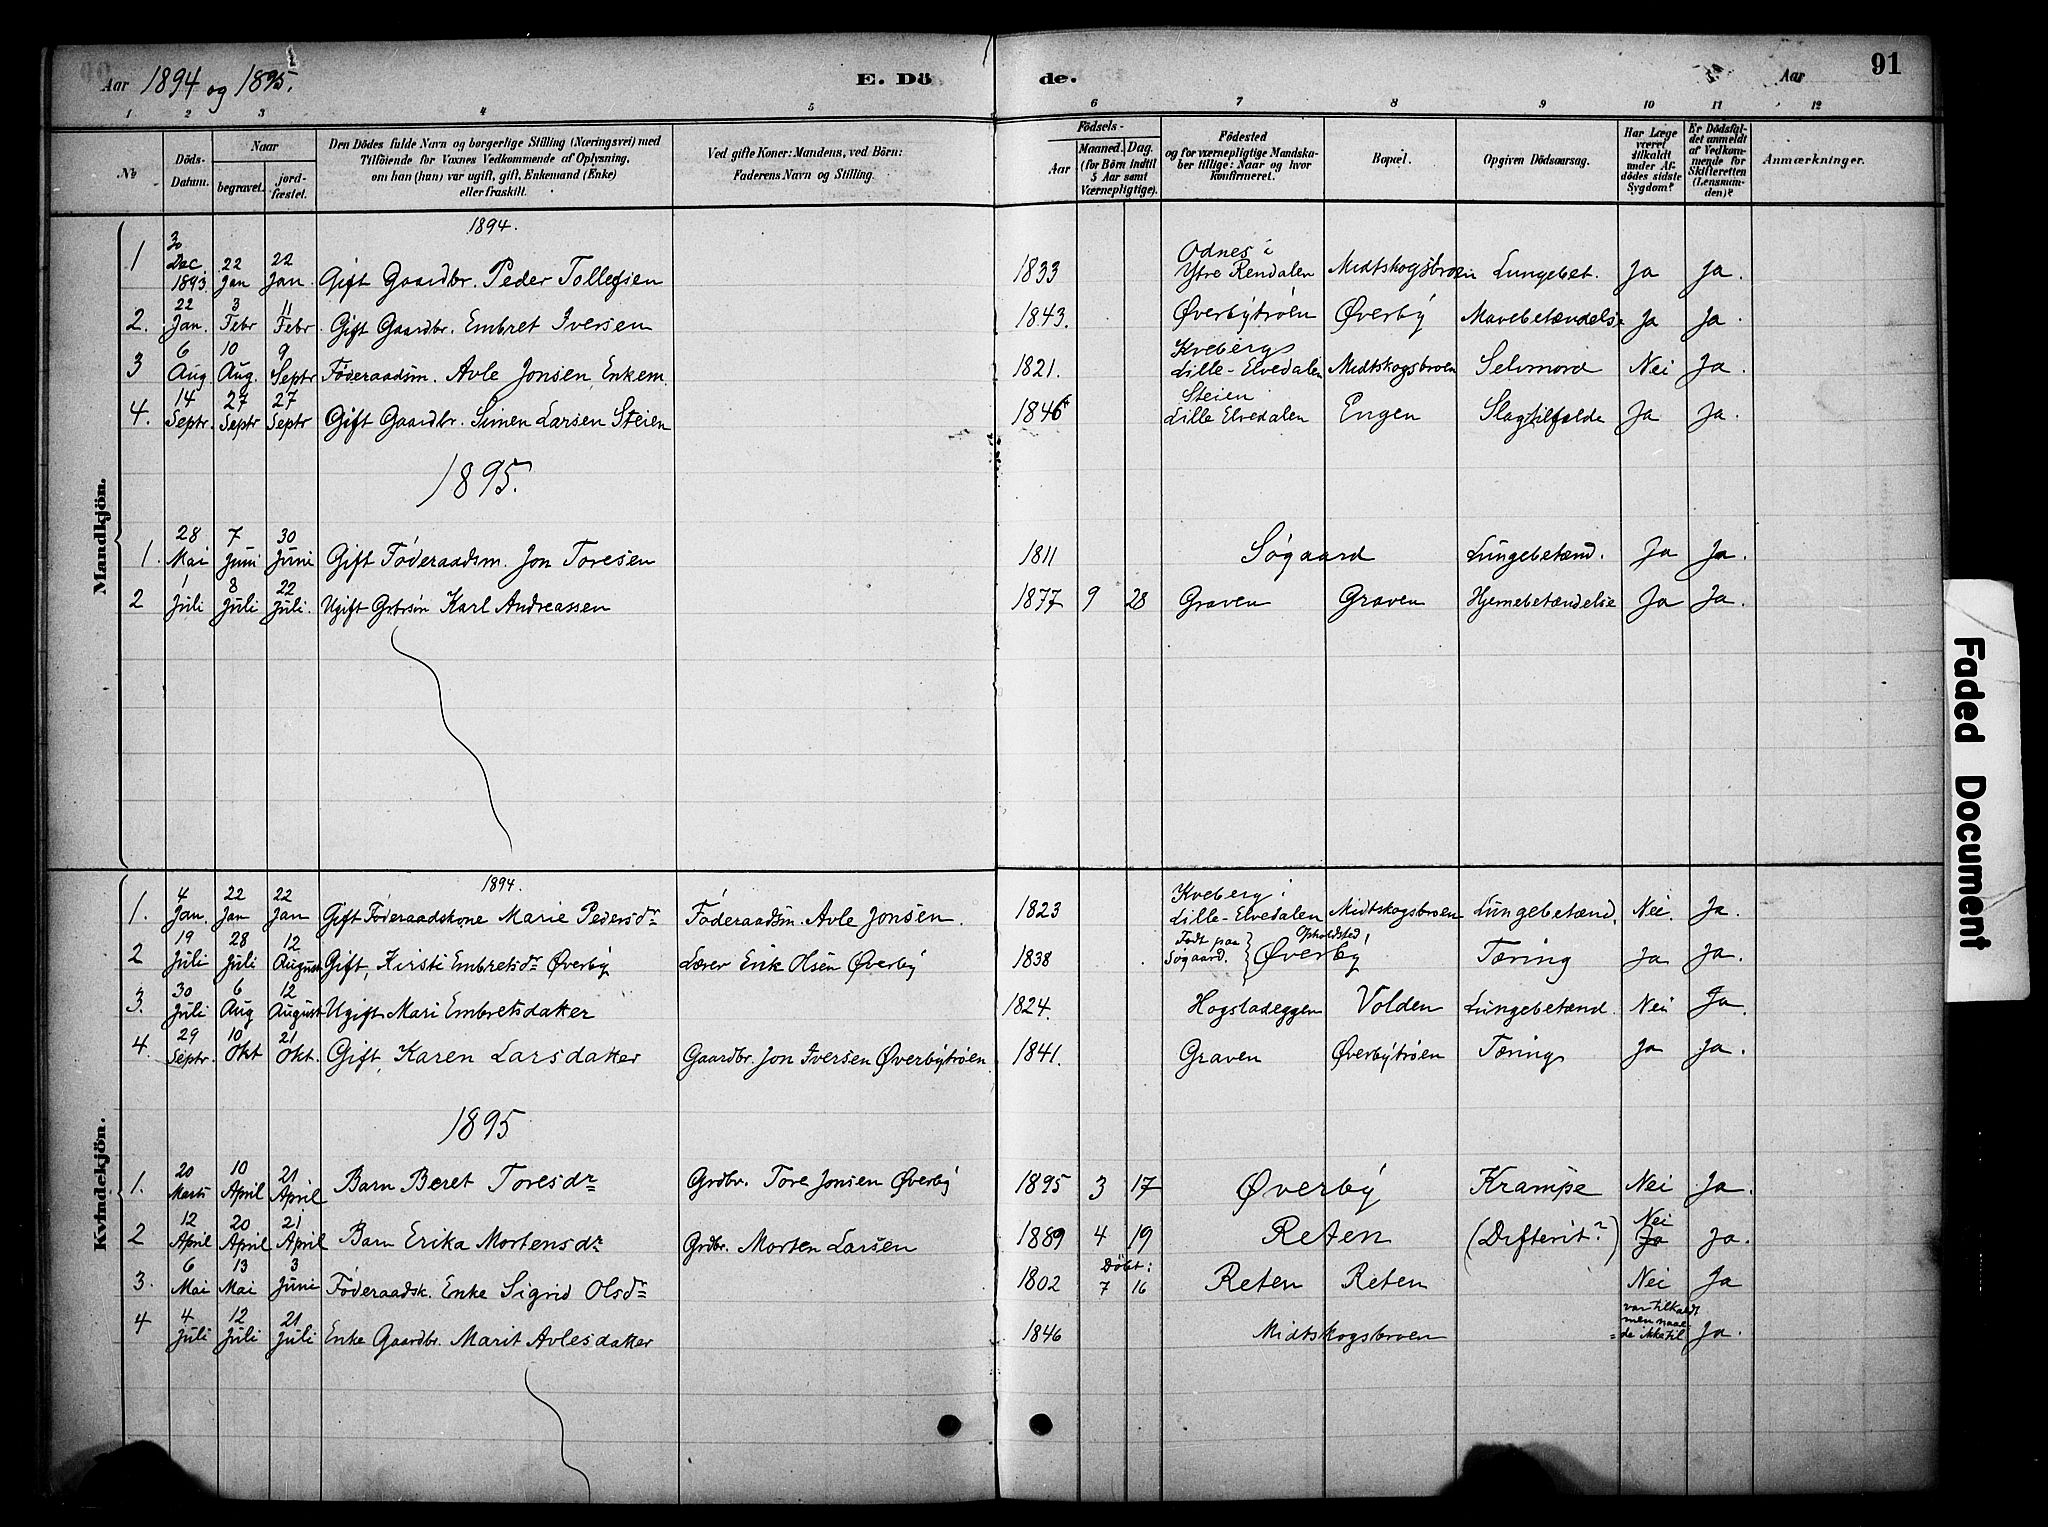 Aar 1894 og 1895. E. Dö de. Aar 91
1 2 3 4 5 6 7 8 9 10 11 12
No
Döds-Datum.
Naar
begravet.
jord-fæstet.
Den Dödes fulde Navn og borgerlige Stilling (Næringsvei) med
Tilföiende for Voxnes Vedkommende af Oplysning,
om han (hun) var ugift, gift, Enkemand (Enke)
eller fraskilt.
Ved gifte Koner: Mandens, ved Börn:
Faderens Navn og Stilling.
Födsels-
Aar
Maaned. Dag.
(for Börn indtil
5 Aar samt
Værnepligtige).
Födested
og for værnepligtige Mandska-
ber tillige: Naar og hvor
Konfirmeret.
Bopæl.
Opgiven Dödsaarsag.
Har Læge
været
tilkaldt
under Af-
dödes sidste
Sygdom?
Er Dödsfal-
det anmeldt
af Vedkom-
mende for
Skifteretten
(Lensman-
den)?
Anmærkninger.
Mandkjön.
1894.
1 30 Dec 1893 22 Jan 22 Jan. Gift Gaardbr. Peder Tollefsen 1833 Odnes i Ytre Rendalen Midtskogsbroen Lungebet. Ja Ja.
2. 22 Jan. 3 Febr 11 Febr Gift Gaardbr. Embret Iversen 1843. Øverbytrøen Øverby Mavebetændelse Ja Ja.
3 6 Aug 10 Aug. 9 Septr Føderaadsm. Avle Jonsen, Enkem. 1821. Kvebergs Lille-Elvedalen Midtskogsbroen Selvmord Nei Ja.
4. 14 Septr. 27 Septr 27 Septr Gift Gaardbr. Simen Larsen Steien 1846 Steien Lille Elvedalen Engen Slagtilfælde Ja Ja.
1895.
1. 28 Mai 7 Juni 30 Juni Gift Føderaadsm. Jon Toresen 1811 Søgaard Lungebetænd. Ja Ja.
2 1 Juli 8 Juli 22 Juli. Ugift Grbrsøn Karl Andreassen 1877 9 28 Graven Graven Hjernebetændelse Ja Ja.
Kvindekjön.
1894.
1. 4 Jan. 22 Jan 22 Jan Gift Føderaadskone Marie Pedersdr Føderaadsm. Avle Jonsen. 1823 Kveberg i Lille-Elvedalen Midtskogsbroen Lungebetænd. Nei. Ja.
2 19 Juli 28 Juli 12 August Gift, Kirsti Embretsdr Øverby Lærer Erik Olsen Øverby 1838 Født paa Søgaard. Opholdsted, Øverby Tæring Ja Ja.
3. 30 Juli 6 Aug 12 August Ugift Mari Embretsdatter 1824. Hogstadeggen Volden Lungebetænd. Nei Ja.
4. 29 Septr. 10 Okt 21 Okt. Gift, Karen Larsdatter Gaardbr. Jon Iversen Øverbytrøen. 1841. Graven Øverbytrøen Tæring Ja Ja.
1895
1. 20 Marts 10 April 21 April Barn Beret Toresdr Grdbr. Tore Jonsen Øverby 1895 3 17 Øverby Krampe Nei Ja.
2 12 April 20 April 21 April Barn Erika Mortensdr Grdbr. Morten Larsen 1889 4 19 Reten (Difterit?) Nei Ja Ja.
3. 6 Mai 13 Mai 3 Juni Føderaadsk. Enke Sigrid Olsdr 1802 Døbt: 7 16 Reten Reten Nei Ja
4 4 Juli 12 Juli 21 Juli Enke Gaardbr. Marit Avlesdatter 1846 Midtskogsbroen var tilkaldt men naae-de ikke til Ja.
Faded Document